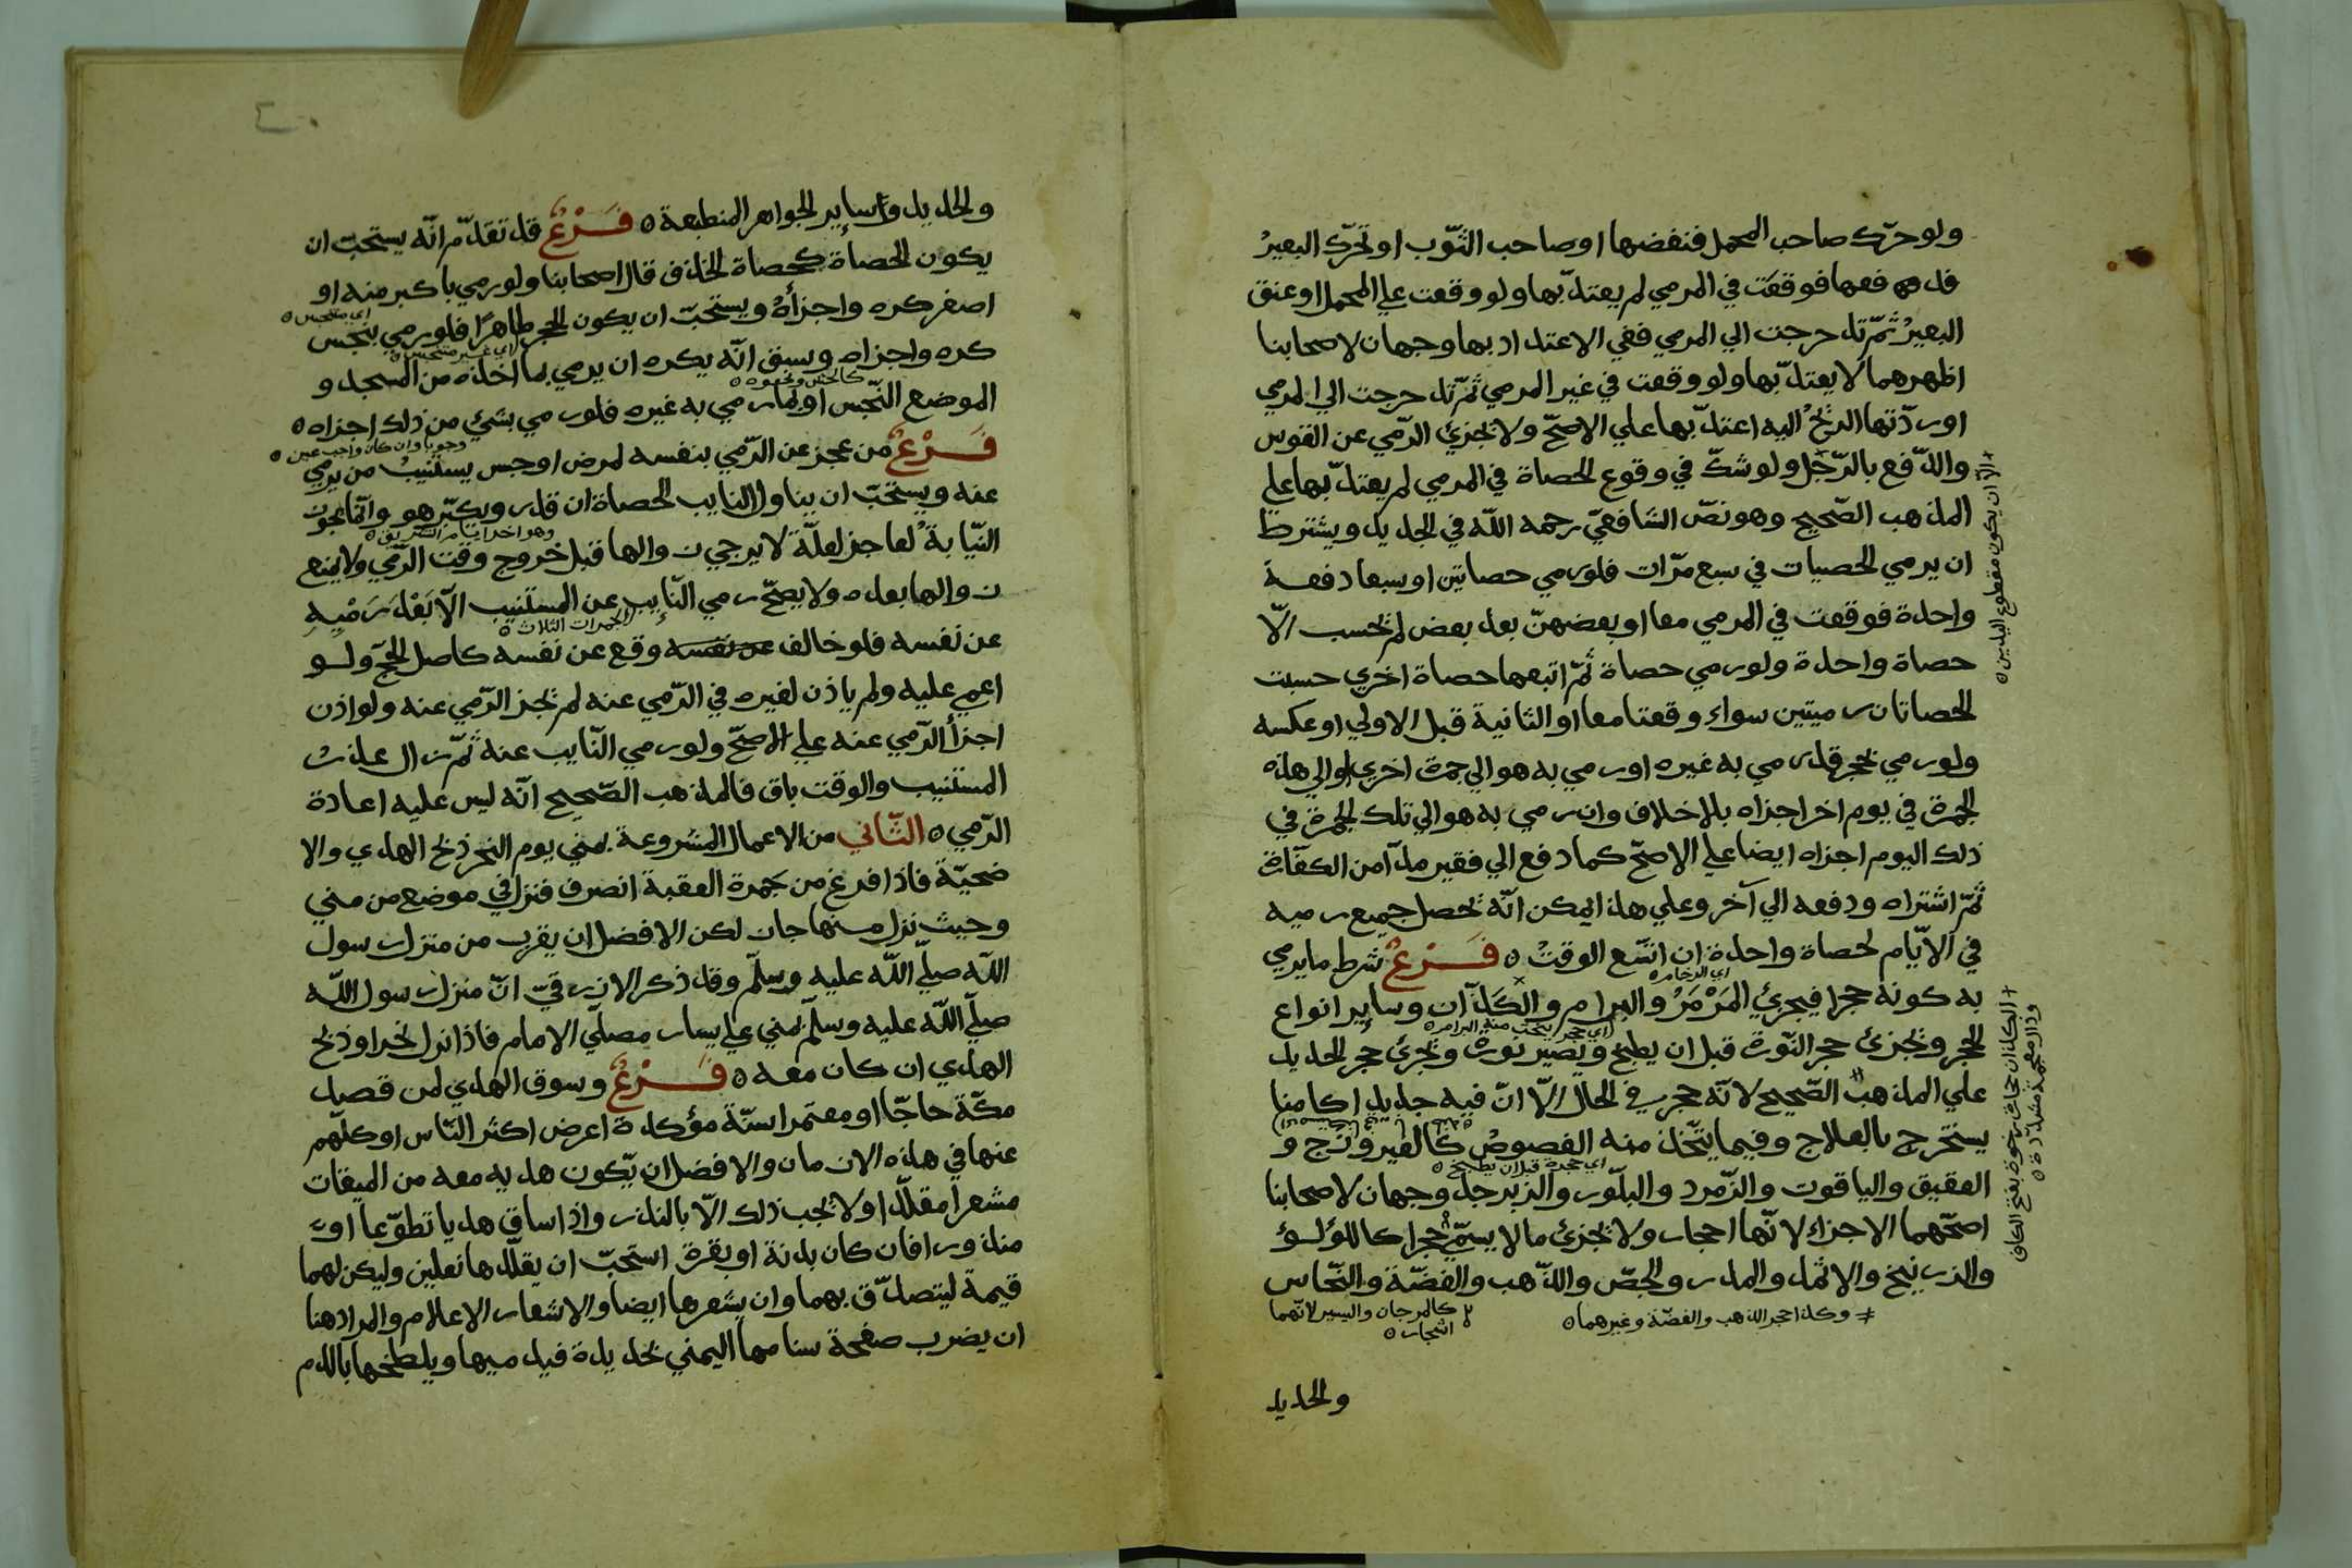 ولو حرّك صاحب المحمل فنفضها او صاحب الثّوب او تحرّك البعير
فدفعها فوقعت في المرمي لم يعتدّ بها ولو وقعت علي المحمل او عنق
البعير ثمّ تدحرجت الي المرمي ففي الاعتداد بها وجهان لاصحابنا
اظهرهما لا يعتدّ بها ولو وقعت في غير المرمي ثمّ تدحرجت الي المرمي
او ردّتها الريح اليه اعتدّ بها علي الاصحّ ولا يجزئ الرّمي عن القوس
والدّفع بالرّجل ولو شكّ في وقوع الحصاة في المرمي لم يعتدّ بها علي
+ الّا ان يكون مقطوع اليدين ه
المذهب الصّحيح وهو نصّ الشافعيّ رحمه اللّه في الجديد ويشترط
ان يرمي الحصيات في سبع مرّات فلو رمي حصاتين او سبعا دفعة
واحدة فوقعت في المرمي معا او بعضهنّ بعد بعض لم تحسب الّا
حصاة واحدة ولو رمي حصاة ثمّ اتبعها حصاة اخري حسبت
الحصاتان رميتين سواء وقعتا معا او الثانية قبل الاولي او عكسه
ولو رمي بحجر قد رمي به غيره او رمي به هو الي جمرة اخري او الي هذه
الجمرة في يوم اخر اجزاه بلا خلاف وان رمي به هو الي تلك الجمرة في
ذلك اليوم اجزاه ايضا علي الاصحّ كما دفع الي فقير مدّا من الكفّارة
ثمّ اشتراه ودفعه الي آخر وعلي هذا يمكن انّه تحصل جميع رميه
في الايّام لحصاة واحدة ان اتسع الوقت ه فَرْعٌ شرط ما يرمي
اي الرخام ه
به كونه حجرا فيجزئ المَرْمَرُ والبرام والكَذّان وساير انواع
+ الكذان حجارة رخوة بفتح الكاف
وذال معجمة مشدّدة ه
الحجر وتجزئ حجر النّورة قبل ان يطبخ ويصير نورة ويجزئ حجر الحديد
علي المذهب الصّحيح لانّه حجر في الحال الّا انّ فيه حديدا كامنا
يستخرج بالعلاج وفيما يتّخذ منه الفصوص كالفيروزج و
اي حجرة قبل ان يطبخ ه
العقيق والياقوت والزّمرد والبلّور والزبرجد وجهان لاصحابنا
اصحّهما الاجزاء لانّها احجار ولا يجزئ ما لا يسمّي حجرا كاللؤلؤ
والزرنيخ والاثمد والمدر والجصّ والذّهب والفضّة والنّحاس
وكذا حجر الذهب والفضّة وغيرهما ه
كالمرجان واليسير لانّهما
اشجار ه
والحديد
والحديد وساير الجواهر المنطبعة ه فَرْعٌ قد تقدّم انّه يستحبّ ان
يكون الحصاة كحصاة الخذف قال اصحابنا ولو رمي باكبر منه او
اصغر كره واجزأه ويستحبّ ان يكون الحجر طاهرًا فلو رمي بنجس
اي متنجس ه
كره واجزاه وسبق انّه يكره ان يرمي بما اخذه من المسجد و
كالحشّ ونحوه ه
الموضع النّجس او بما رمي به غيره فلو رمي بشئ من ذلك اجزاه ه
فَرْعٌ من عجز عن الرّمي بنفسه لمرض او حبس يستنيب من يرمي
وجوبا وان كان واجب عين ه
عنه ويستحبّ ان يناول النايب الحصاة ان قدر ويكبّر هو وانّما تجوز
وهو اخر ايام التشريق ه
النّيابة لعاجز لعلّة لا يرجي زوالها قبل خروج وقت الرّمي ولا يمنع
زوالها بعده ولا يصحّ رمي النّايب عن المستنيب الّا بَعْدَ رَمْيِهِ
الجمرات الثلاث ه
عن نفسه فلو خالف عن نفسه وقع عن نفسه كاصل الحجّ ولو
اغمي عليه ولم ياذن لغيره في الرّمي عنه لم تجز الرّمي عنه ولو اذن
اجزأ الرّمي عنه علي الاصحّ ولو رمي النّايب عنه ثمّ زال عذر
المستنيب والوقت باق فالمذهب الصّحيح انّه ليس عليه اعادة
الرّمي ه الثّاني من الاعمال المشروعة بمني يوم النحر ذبح الهدي والا
ضحيّة فاذا فرغ من جمرة العقبة انصرف فنزل في موضع من مني
وحيث نزل منها جاز لكن الافضل ان يقرب من منزل رسول
اللّه صلّي اللّه عليه وسلّم وقد ذكر الازرقيّ انّ منزل رسول اللّه
صلّي اللّه عليه وسلّم بمني علي يسار مصلّي الامام فاذا نزل نحر او ذبح
الهدي ان كان معه ه فَرْعٌ وسوق الهدي لمن قصد
مكّة حاجّا او معتمرا سنّة مؤكدة اعرض اكثر النّاس او كلّهم
عنها في هذه الازمان والافضل ان يكون هديه معه من الميقات
مشعرا مقلّدا ولا يجب ذلك الّا بالنذر واذا ساق هديا تطوّعا او
منذورا فان كان بدنة او بقرة استحبّ ان يقلّدها نعلين وليكن لهما
قيمة ليتصدّق بهما وان يشعرها ايضا والاشعار الاعلام والمراد هنا
ان يضرب صفحة سنامها اليمني بحديدة فيدميها ويلطخها بالدم